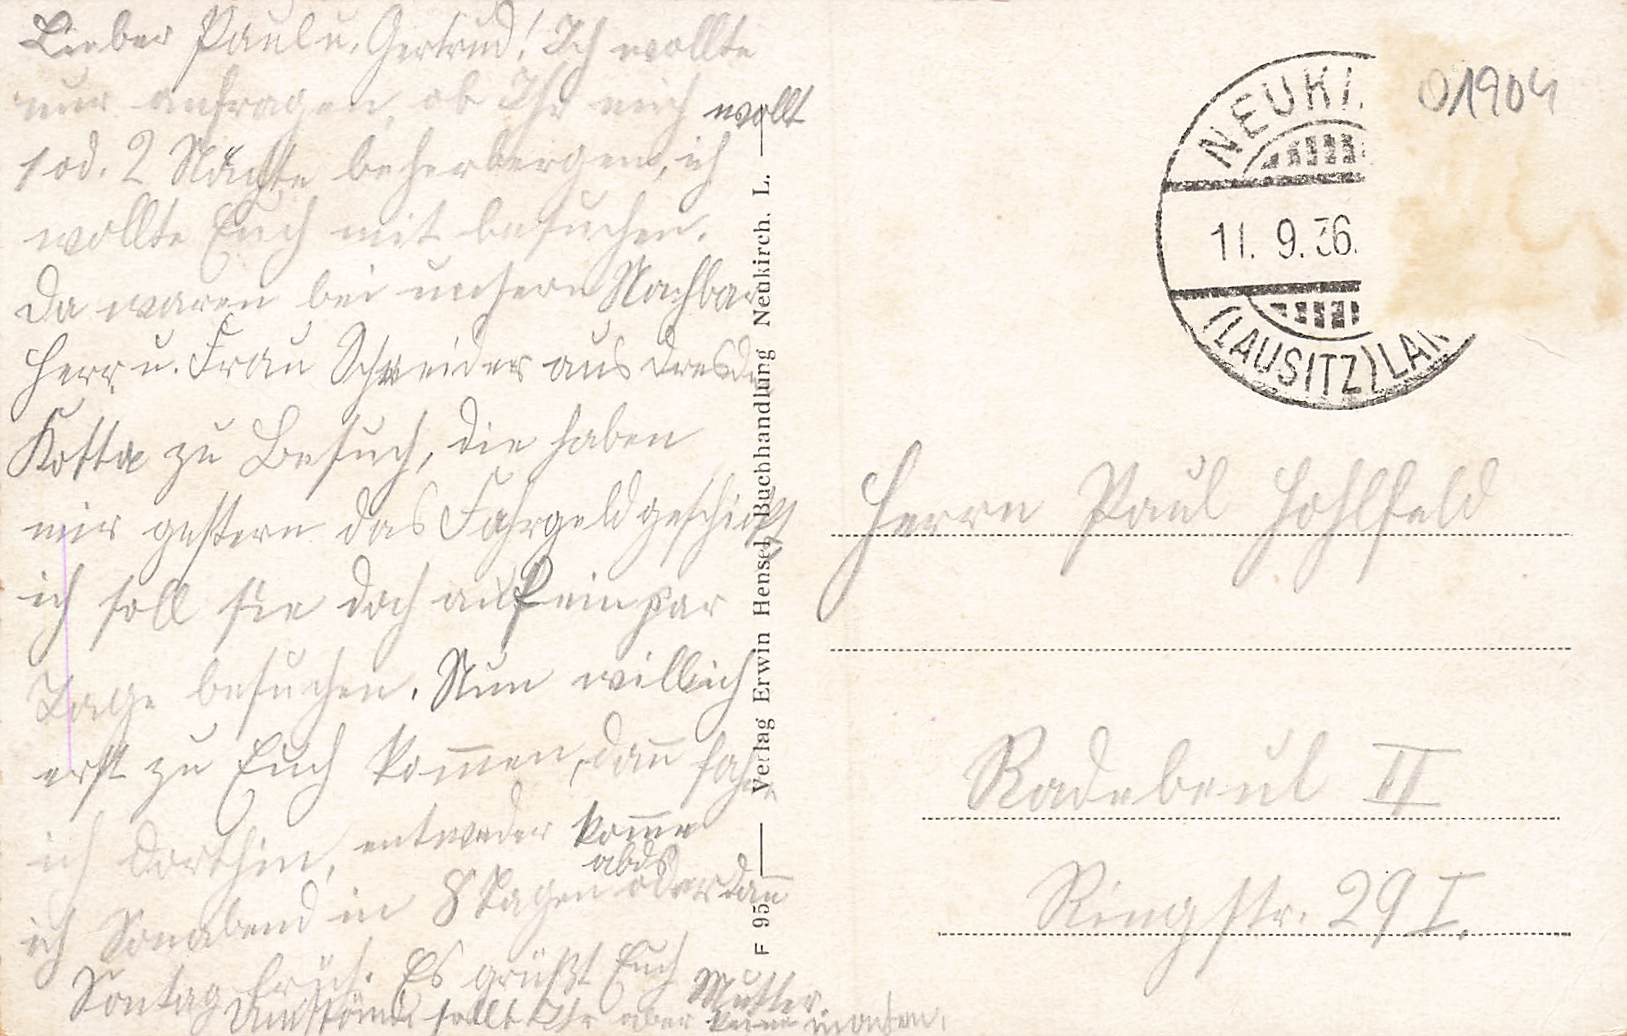 Lieber Paul u. Gertrud! Ich wollte
nur anfragen, ob Ihr mich wollt
1 od. 2 Nächte beherbergen, ich
wollte Euch mit besuchen.
Da waren bei unsern Nachbar
Herr u. Frau Schneider aus Dresden
Kotta zu Besuch, die haben
mir gestern das Fahrgeld geschickt
ich soll sie doch auf ein paar
Tage besuchen. Nun will ich
erst zu Euch kommen, dann fahre
ich dorthin, entweder komme
ich Sonabend in 8 Tagen abds oder dann
Sontag früh. Es grüßt Euch Mutter.
Umstände sollt Ihr aber keine machen.
F 95 — Verlag Erwin Hensel, Buchhandlung Neukirch. L. —
NEUKI
11. 9. 36.
(LAUSITZ) LAN
01904
Herrn Paul Hohlfeld
Radebeul II
Ringstr. 29 I.